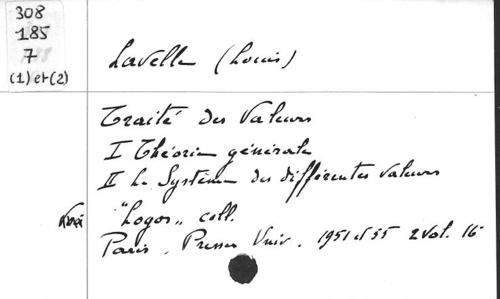 308
185
7
(1) et (2)
Lavelle (Louis)
Traité des Valeurs
I Théorie générale
II Le Système des différentes valeurs
"Logos" coll.
Paris. Presses Univ. 1951 et 55 2 vol. 16°